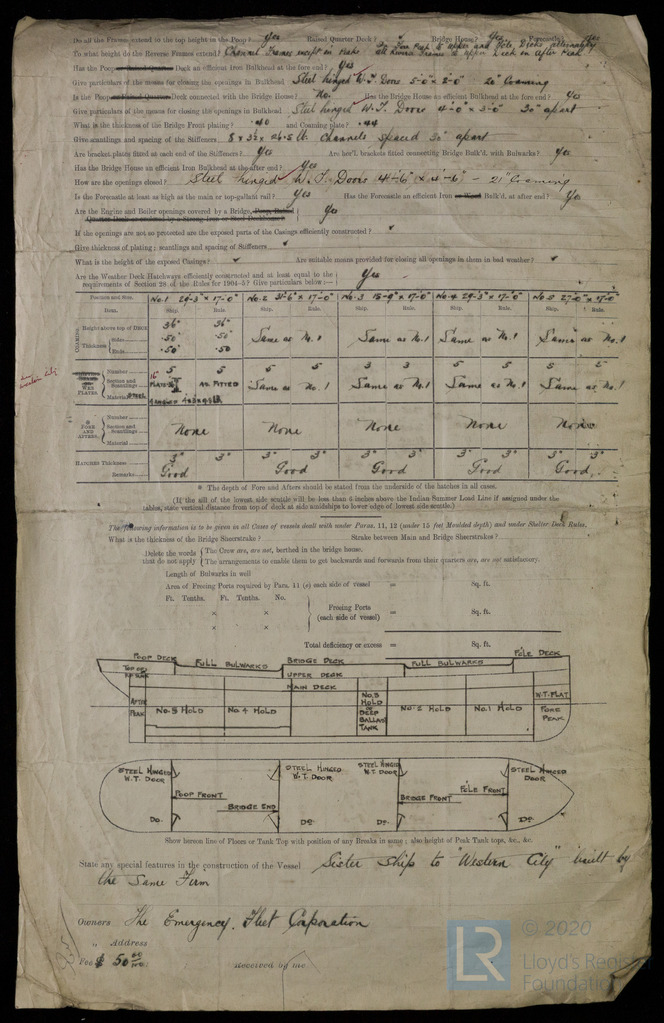 Do all the Frames extend to the top height in the Poop? Yes Raised Quarter Deck? ✓ Bridge House? Yes Forecastle? Yes
To what height do the Reverse Frames extend? Channel Frames except in Peaks In Fore Peak to upper and F'cle Decks alternately
Has the Poop or Raised Quarter Deck an efficient Iron Bulkhead at the fore end? Yes
Give particulars of the means for closing the openings in Bulkhead Steel hinged W.T. Doors 5'-0" x 2'-0" 20" Coaming
Is the Poop or Raised Quarter Deck connected with the Bridge House? No. Has the Bridge House an efficient Bulkhead at the fore end? Yes
Give particulars of the means for closing the openings in Bulkhead Steel hinged W.T. Doors 4'-0" x 3'-0" 30" apart
What is the thickness of the Bridge Front plating? .40 and Coaming plate? .44
Give scantlings and spacing of the Stiffeners 8 x 3½ x 26.5 lb. Channels Spaced 30" apart
Are bracket plates fitted at each end of the Stiffeners? Yes Are hor'l. brackets fitted connecting Bridge Bulk'd. with Bulwarks? Yes
Has the Bridge House an efficient Iron Bulkhead at the after end? Yes
How are the openings closed? Steel hinged W.T. Doors 4'-6" x 4'-6" - 21" Coaming
Is the Forecastle at least as high as the main or top-gallant rail? Yes Has the Forecastle an efficient Iron or Wood Bulk'd. at after end? Yes
Are the Engine and Boiler openings covered by a Bridge, Poop, Raised Quarter Deck Yes
If the openings are not so protected are the exposed parts of the Casings efficiently constructed? ✓
Give thickness of plating; scantlings and spacing of Stiffeners ✓
What is the height of the exposed Casings? ✓ Are suitable means provided for closing all openings in them in bad weather? ✓
Are the Weather Deck Hatchways efficiently constructed and at least equal to the
requirements of Section 28 of the Rules for 1904-5? Give particulars below:— Yes
Position and Size. No.1 29'-3" x 17'-0" No.2 31'-6" x 17'-0" No.3 15'-9" x 17'-0" No.4 29'-3" x 17'-0" No.5 27'-0" x 17'-0"
Item. Ship. Rule. Ship. Rule. Ship. Rule. Ship. Rule. Ship. Rule.
COAMING Height above top of DECK 36" 36"
Thickness Sides .50" .50" Same as No.1 Same as No.1 Same as No.1 Same as No.1
Ends .50" .50
Number 5 5 5 5 3 3 5 5 5 5
WEB PLATES. Section and Scantlings PLATE AS FITTED Same as No.1 Same as No.1 Same as No.1 Same as No.1
Material STEEL
* FORE AND AFTERS. Number
Section and Scantlings None None None None None
Material
HATCHES Thickness 3" 3" 3" 3" 3" 3" 3" 3" 3" 3"
Remarks Good Good Good Good Good
* The depth of Fore and Afters should be stated from the underside of the hatches in all cases.
(If the sill of the lowest side scuttle will be less than 6 inches above the Indian Summer Load Line if assigned under the
tables, state vertical distance from top of deck at side amidships to lower edge of lowest side scuttle.)
The following information is to be given in all Cases of vessels dealt with under Paras. 11, 12 (under 15 feet Moulded depth) and under Shelter Deck Rules.
What is the thickness of the Bridge Sheerstrake? Strake between Main and Bridge Sheerstrakes?
Delete the words that do not apply { The Crew are, are not, berthed in the bridge house.
The arrangements to enable them to get backwards and forwards from their quarters are, are not satisfactory.
Length of Bulwarks in well
Area of Freeing Ports required by Para. 11 (e) each side of vessel = Sq. ft.
Ft. Tenths. Ft. Tenths. No.
× × Freeing Ports (each side of vessel) = Sq. ft.
× ×
Total deficiency or excess = Sq. ft.
POOP DECK FULL BULWARKS BRIDGE DECK FULL BULWARKS F'CLE DECK
UPPER DECK
MAIN DECK
AFTER PEAK NO.5 HOLD NO.4 HOLD NO.3 HOLD OR DEEP BALLAST TANK NO.2 HOLD NO.1 HOLD W.T. FLAT FORE PEAK
STEEL HINGED W.T. DOOR STEEL HINGED W.T. DOOR STEEL HINGED W.T. DOOR STEEL HINGED DOOR
POOP FRONT BRIDGE END BRIDGE FRONT F'CLE FRONT
DO. DO. DO. DO.
Show hereon line of Floors or Tank Top with position of any Breaks in same; also height of Peak Tank tops, &c., &c.
State any special features in the construction of the Vessel Sister ship to "Western City" built by
the Same Firm
Owners The Emergency Fleet Corporation
" Address
Fee $ 50 00/100 Received by me
© 2020
LR
Lloyd's Register
Foundation